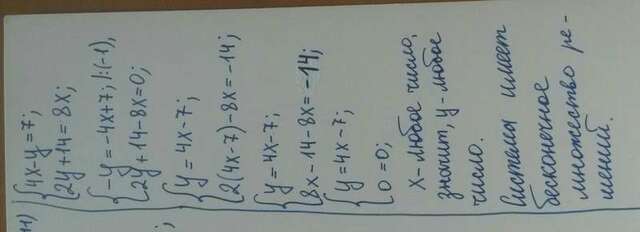 11) { 4x-y=7;
{ 2y+14=8x;
{ -y=-4x+7; /:(-1),
{ 2y+14-8x=0;
; { y=4x-7;
{ 2(4x-7)-8x=-14;
{ y=4x-7;
{ 8x-14-8x=-14;
{ y=4x-7;
{ 0=0;
x-любое число,
значит, y-любое
число.
Система имеет
бесконечное
множество ре-
шений.